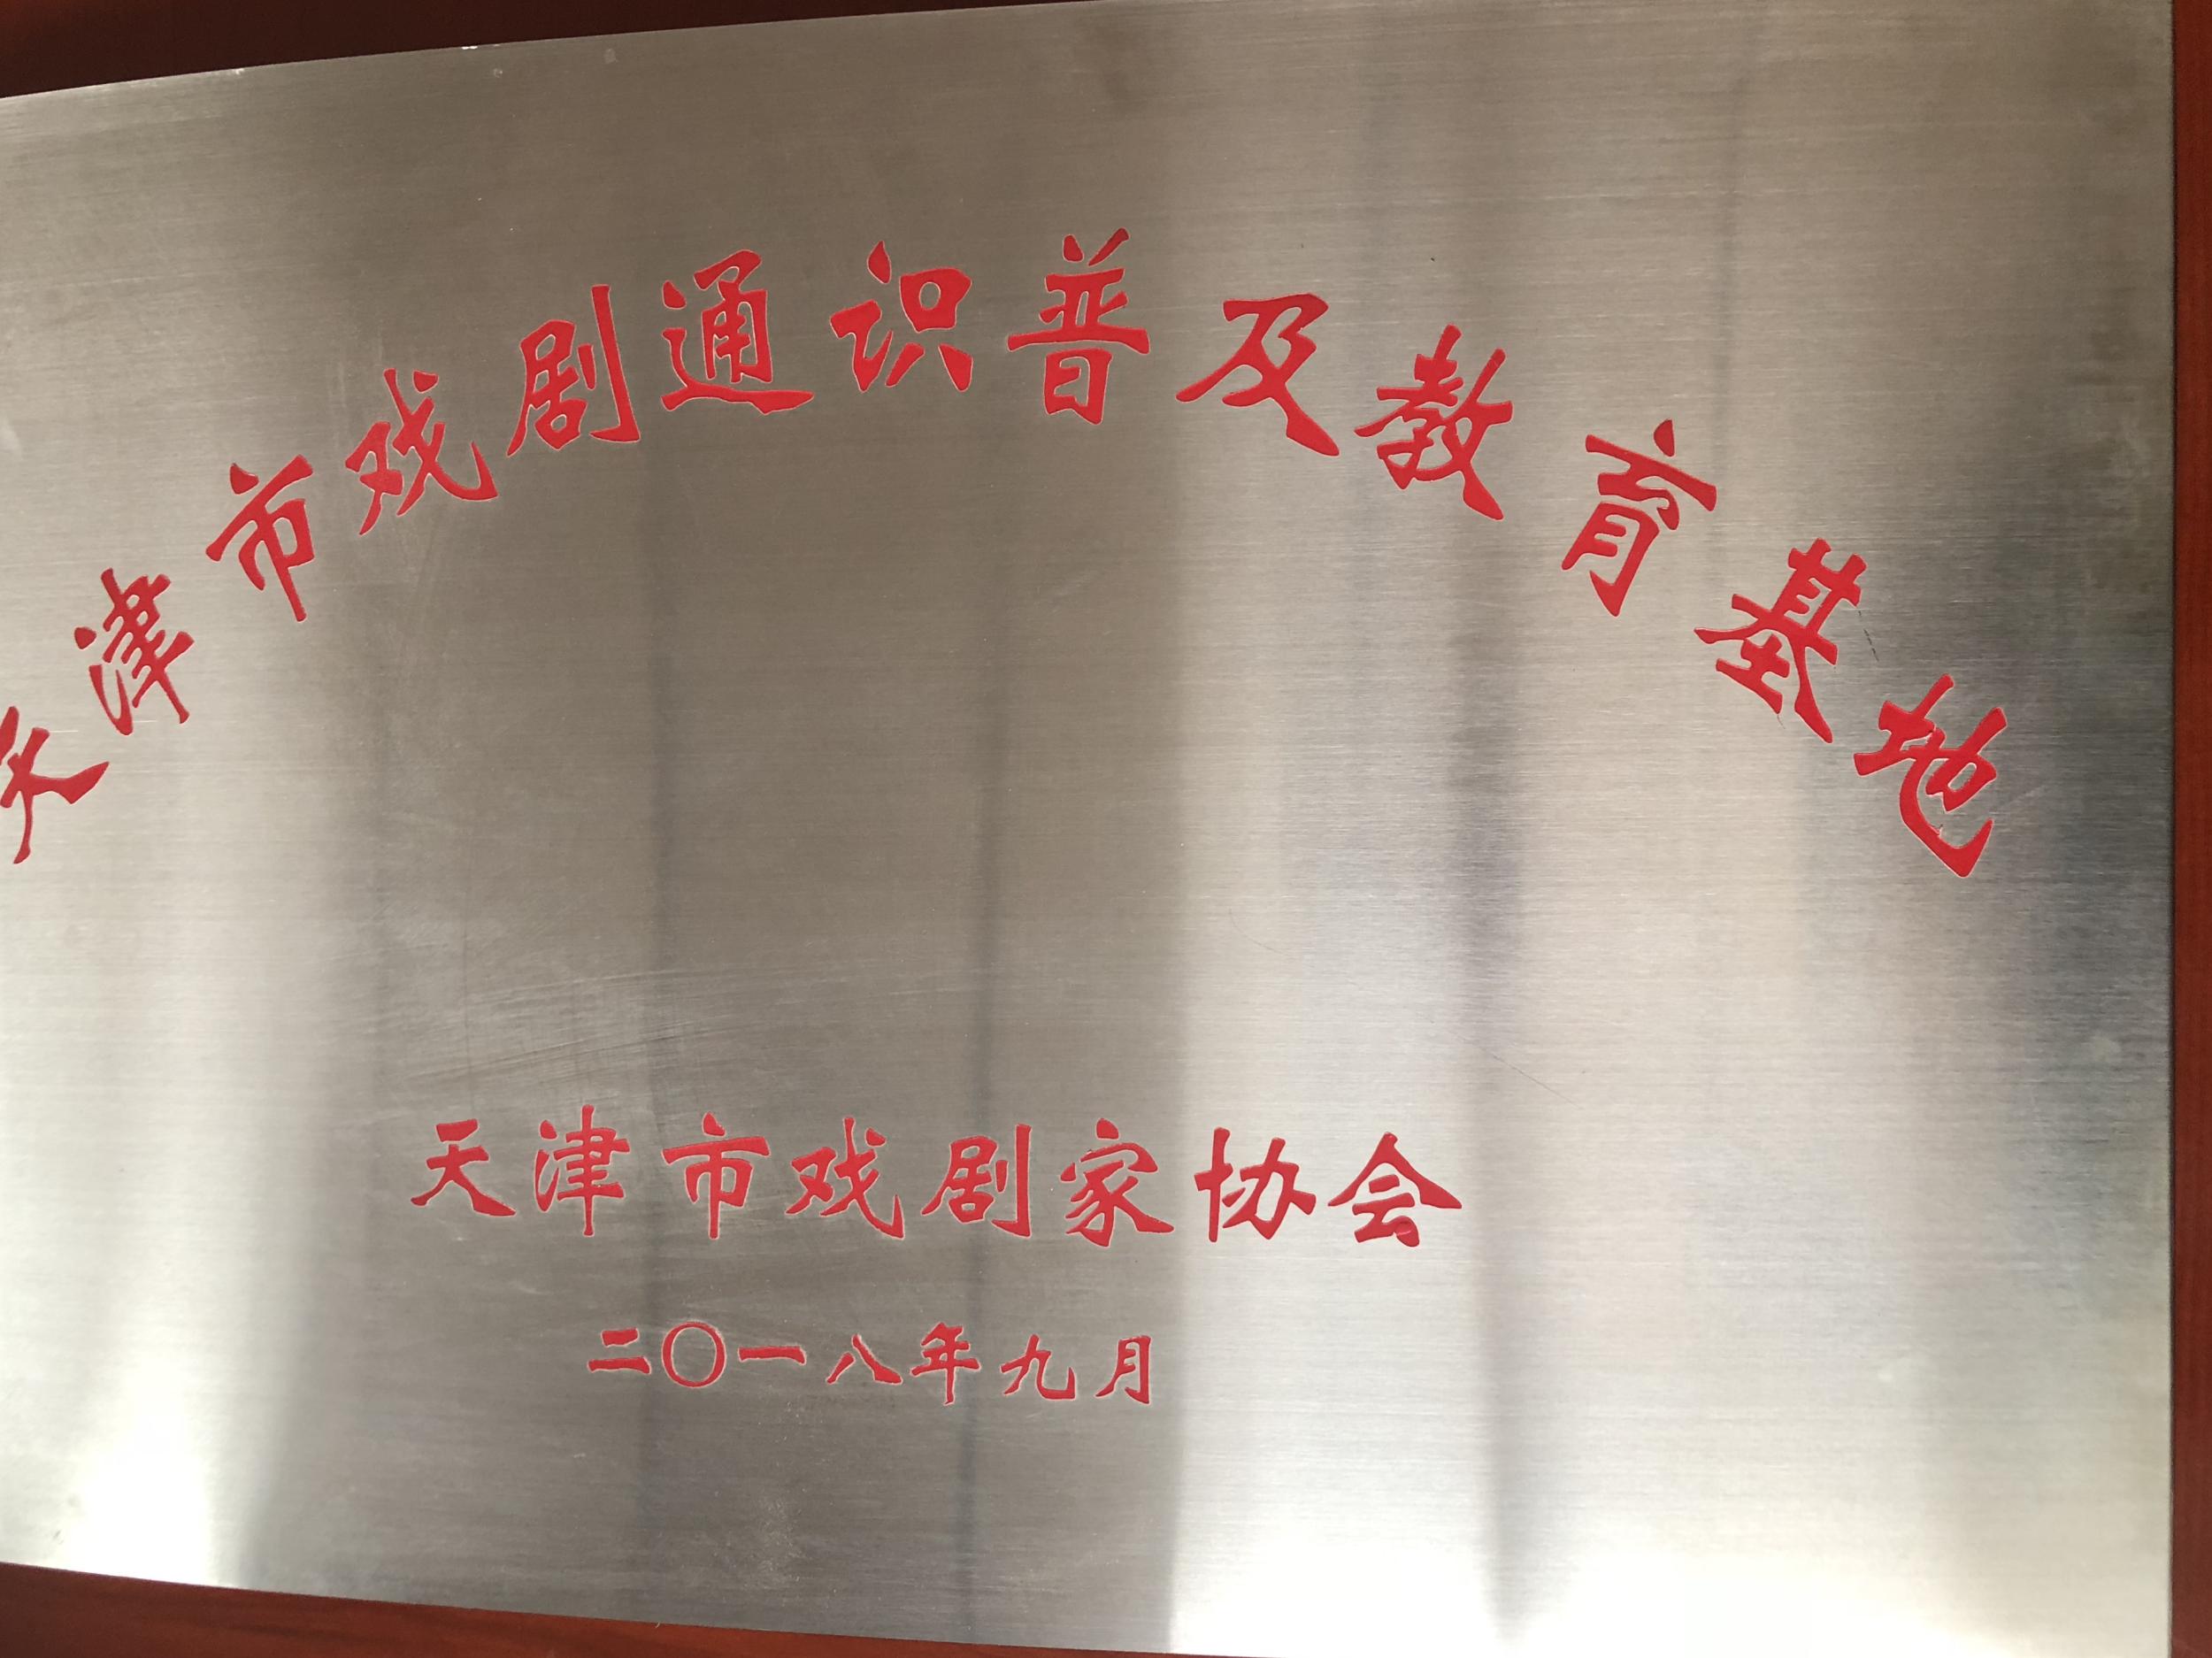 天津市戏剧通识普及教育基地
天津市戏剧家协会
二〇一八年九月